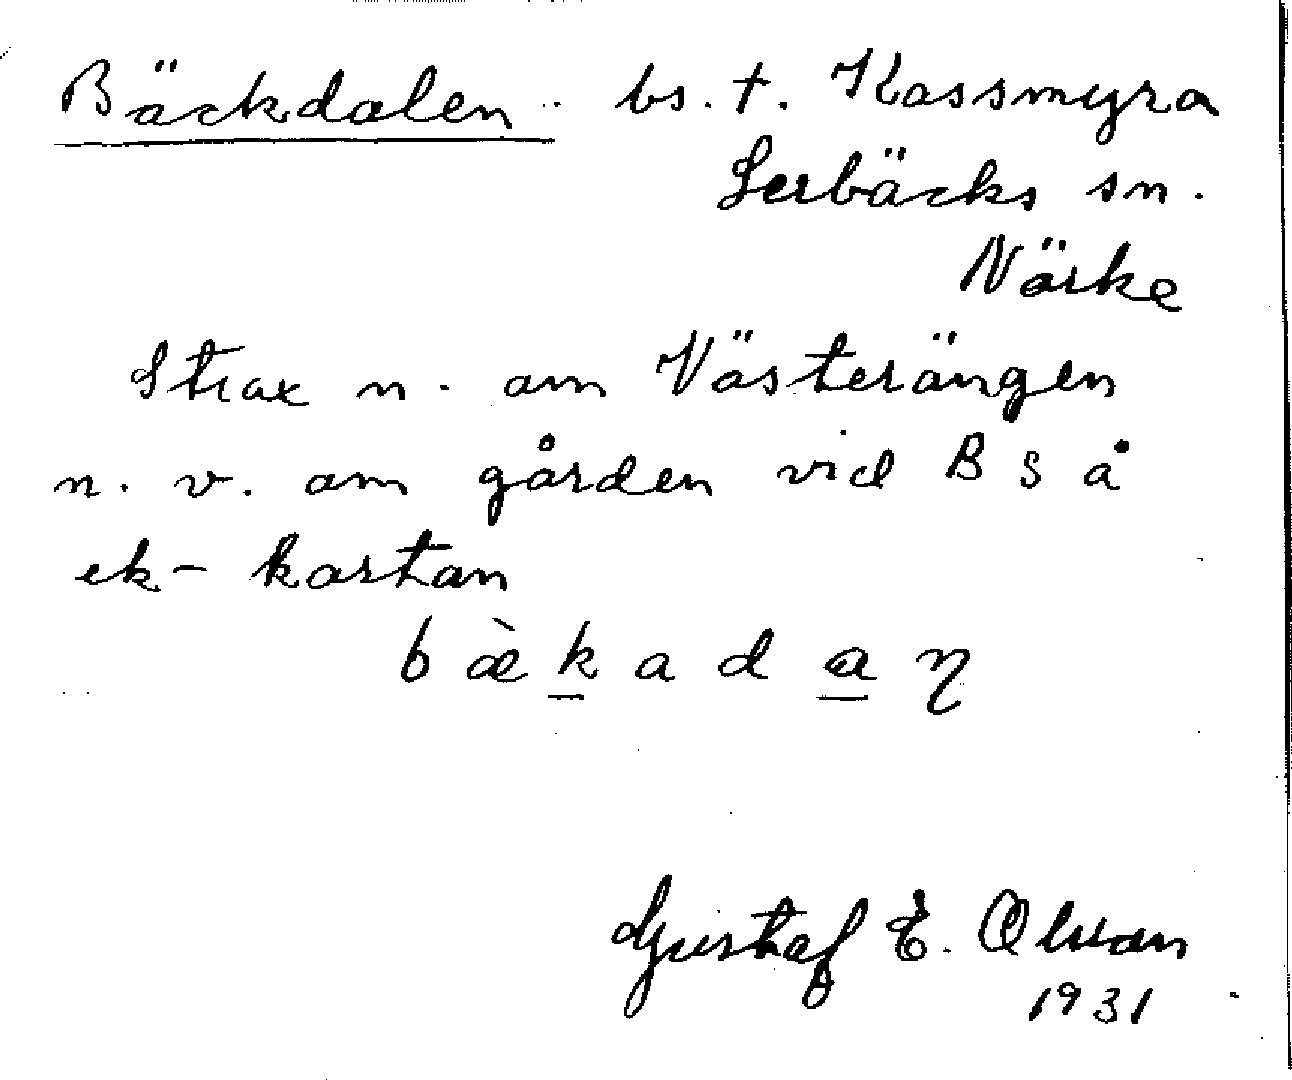 Bäckdalen bs. t. Kassmyra
Lerbäcks sn.
Närke
Strax n. om Västerängen
n. v. om gården vid B S å
ek-kartan
b æ̀ k a d a η
Gustaf E. Olsson
1931